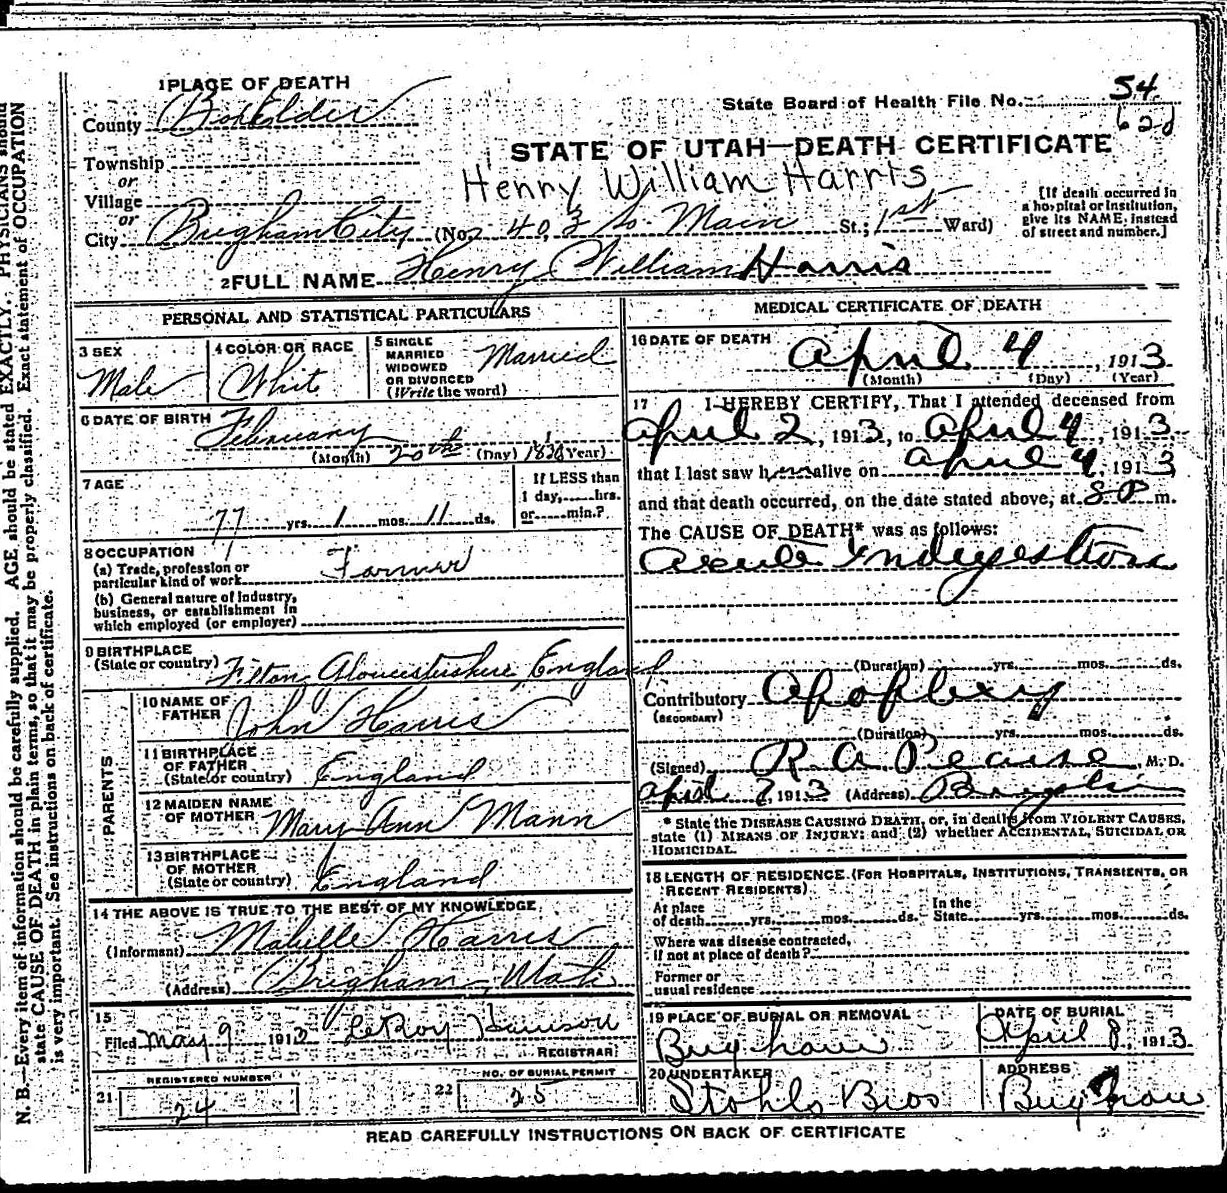 1 PLACE OF DEATH
County Box Elder
Township
or
Village
or
City Brigham City (No. 403 So. Main St.; 1st Ward)
State Board of Health File No. 54
62d
STATE OF UTAH—DEATH CERTIFICATE
Henry William Harris
[If death occurred in
a hospital or institution,
give its NAME, instead
of street and number.]
2 FULL NAME Henry William Harris
PERSONAL AND STATISTICAL PARTICULARS
3 SEX
Male
4 COLOR OR RACE
Whit
5 SINGLE
MARRIED
WIDOWED
OR DIVORCED
(Write the word)
Married
6 DATE OF BIRTH
February
20th
(Month) (Day) (Year)
7 AGE
77 yrs. 1 mos. 11 ds.
If LESS than
1 day, hrs.
or min.?
8 OCCUPATION
(a) Trade, profession or
particular kind of work
Farmer
(b) General nature of industry,
business, or establishment in
which employed (or employer)
9 BIRTHPLACE
(State or country) Filton, Gloucestershire, England
PARENTS
10 NAME OF
FATHER
John Harris
11 BIRTHPLACE
OF FATHER
(State or country)
England
12 MAIDEN NAME
OF MOTHER
Mary Ann Mann
13 BIRTHPLACE
OF MOTHER
(State or country)
England
14 THE ABOVE IS TRUE TO THE BEST OF MY KNOWLEDGE
(Informant) Harris
(Address) Brigham, Utah
15
Filed May 9 1913 LeRoy Harrison
REGISTRAR
REGISTERED NUMBER
21 24
NO. OF BURIAL PERMIT
22 25
MEDICAL CERTIFICATE OF DEATH
16 DATE OF DEATH
April 4, 1913
(Month) (Day) (Year)
17 I HEREBY CERTIFY, That I attended deceased from
April 2, 1913, to April 4, 1913
that I last saw h alive on April 4, 1913
and that death occurred, on the date stated above, at 8 P m.
The CAUSE OF DEATH* was as follows:
Acute Indigestion
(Duration) yrs. mos. ds.
Contributory Apoplexy
(SECONDARY)
(Duration) yrs. mos. ds.
(Signed) R A Pearse, M. D.
April 7, 1913 (Address)
* State the DISEASE CAUSING DEATH, or, in deaths from VIOLENT CAUSES,
state (1) MEANS OF INJURY; and (2) whether ACCIDENTAL, SUICIDAL OR
HOMICIDAL.
18 LENGTH OF RESIDENCE (FOR HOSPITALS, INSTITUTIONS, TRANSIENTS, OR
RECENT RESIDENTS)
At place
of death yrs. mos. ds.
In the
State yrs. mos. ds.
Where was disease contracted,
if not at place of death?
Former or
usual residence
19 PLACE OF BURIAL OR REMOVAL
Brigham
DATE OF BURIAL
April 8, 1913
20 UNDERTAKER
Stohls Bros
ADDRESS
Brigham
READ CAREFULLY INSTRUCTIONS ON BACK OF CERTIFICATE
N. B.—Every item of information should be carefully supplied. AGE should be stated EXACTLY. PHYSICIANS should
state CAUSE OF DEATH in plain terms, so that it may be properly classified. Exact statement of OCCUPATION
is very important. See instructions on back of certificate.